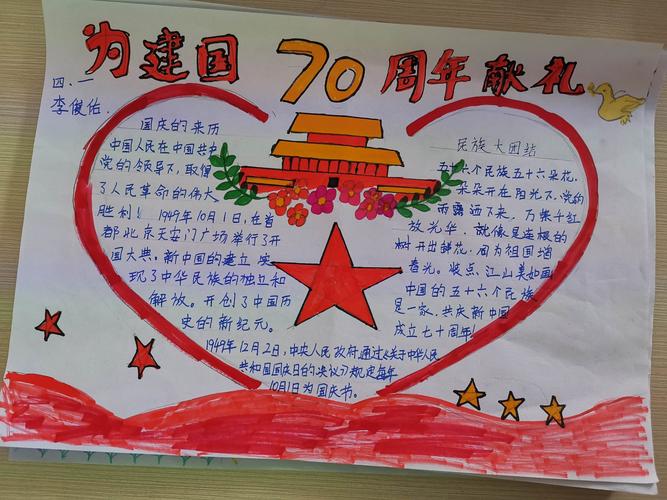 为建国70周年献礼
四、一
李俊佑
国庆的来历
中国人民在中国共中
党的领导下,取得
了人民革命的伟大
胜利!1949年10月1日,在首
都北京天安门广场举行了开
国大典。新中国的建立,实
现了中华民族的独立和
解放。开创了中国历
史的新纪元。
1949年12月2日,中央人民政府通过《关于中华人民
共和国国庆日的决议》规定每年
10月1日为国庆节。
民族大团结
五十六个民族五十六朵花,
朵朵开在阳光下,党的
雨露洒下来,万紫千红
放光华,就像是连根的
树开出鲜花,同为祖国增
春光。装点江山美如画
中国的五十六个民族
是一家,共庆新中国
成立七十周年!